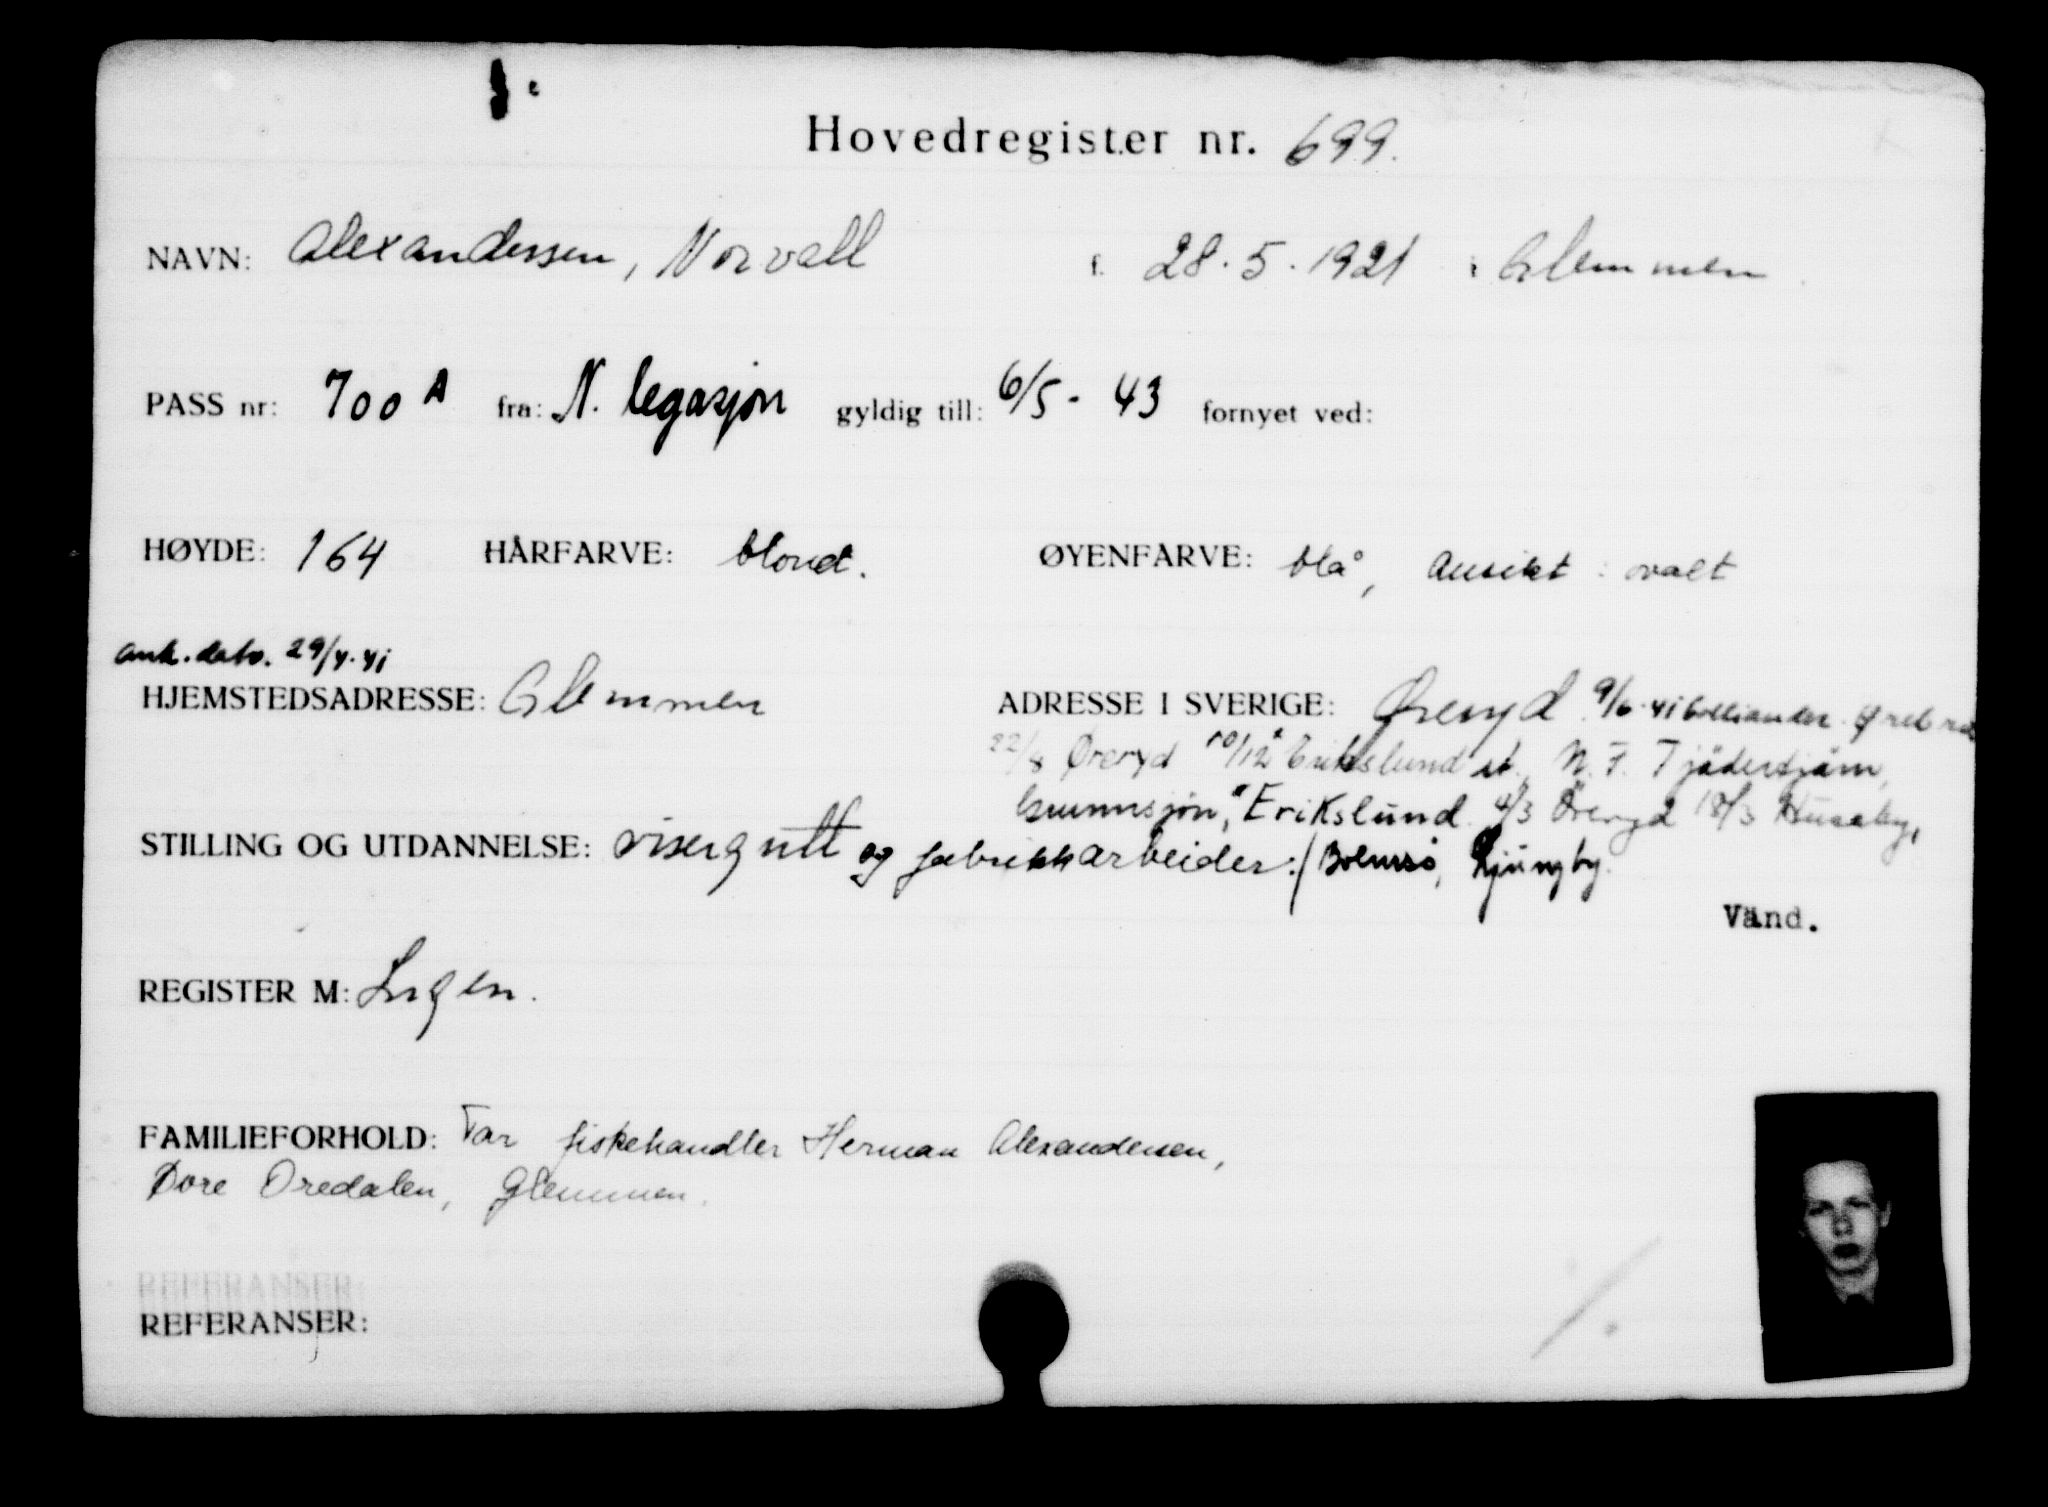 Hovedregister nr. 699.
NAVN: Alexandersen, Norvall f. 28.5.1921 i Glemmen
PASS nr: 700 A fra: N. legasjon gyldig till: 6/5 - 43 fornyet ved:
HØYDE: 164 HÅRFARVE: blond. ØYENFARVE: blå, Ansikt : ovalt
Ank. dato. 29/4-41
HJEMSTEDSADRESSE: Glemmen ADRESSE I SVERIGE: Øreryd 9/6-41
22/8 Øreryd 10/12 Erikslund st. N. F. Tjäderstjärn,
Grunnsjön, Erikslund 4/3 Öreryd 18/3 Husaby,
STILLING OG UTDANNELSE: visergutt og fabrikkarbeider. / Bolmsö, Ljungby.
Vänd.
REGISTER M: Ingen.
FAMILIEFORHOLD: Far fiskehandler Herman Alexandersen,
Øvre Oredalen, Glemmen.
REFERANSER:
REFERANSER: